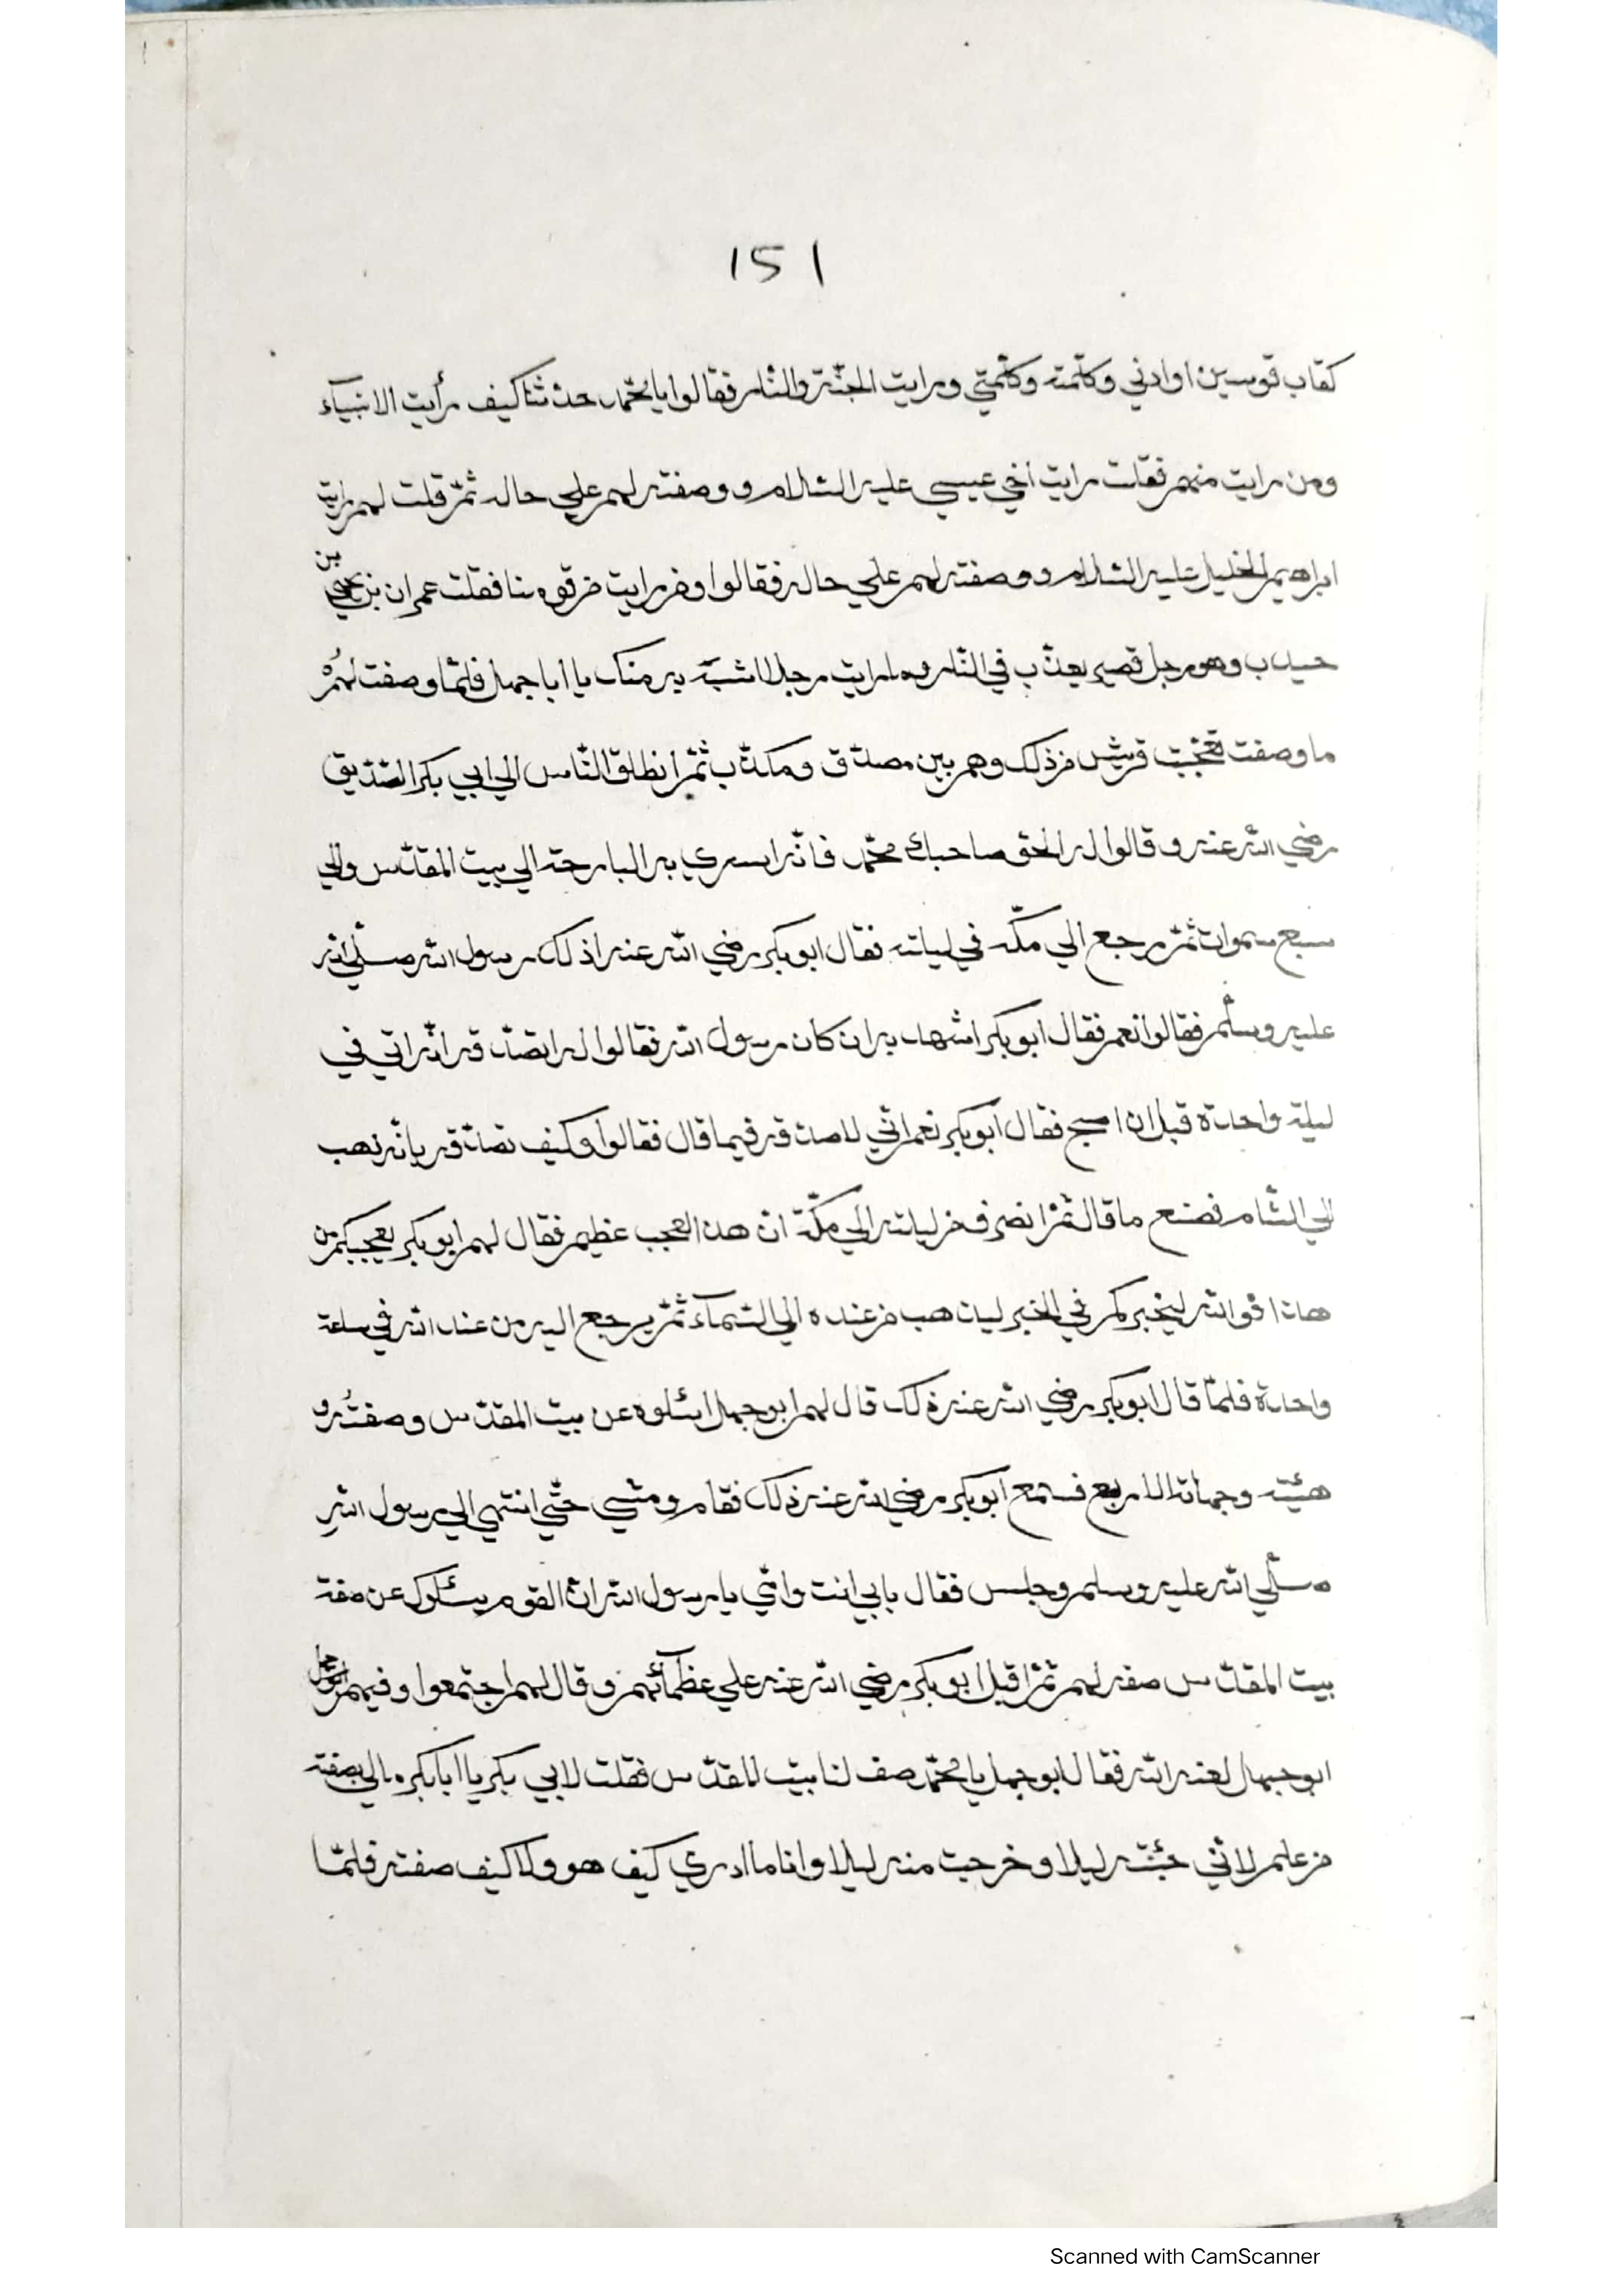 ١٥١
كقاب قوسين او ادني وكلّمته وكلّمتي ورايت الجنّة والنّار فقالوا يا محّمد حدثنا كيف رأيت الانبيآء
ومن رايت منهم فقلت رايت اخي عيسي عليه السّلام و وصفته لهم علي حاله ثمّ قلت لهم رايت
ابراهيم الخليل عليه السّلام و وصفته لهم علي حاله فقالوا وفر رايت من قوه منا فقلت عمران بن يحيي بن
حيدب وهو رجل قصير يعذّب في النّار وما رايت رجلا اشبّه به منك يا ابا جهل فلمّا وصفت لهُم
ما وصفت تعجّبت قريش من ذلك وهم بين مصدّق ومكذّب ثمّ انطلق النّاس الي ابي بكر الصّديق
رضي الله عنه و قالوا له الحق صاحبك محمّد فانّه اسري به البارحة الي بيت المقدّس والي
سبع سموات ثمّ رجع الي مكّة في ليلته فقال ابو بكر رضي الله عنه اذ لك رسول الله صلّي الله
عليه وسلّم فقالوا نعم فقال ابو بكر اشهد به ان كان رسول الله فقالوا له اتصدّقه انّه اتي في
ليلة واحدة قبل ان اصبح فقال ابو بكر نعم انّي لاصدّقه فيما قال فقالوا وكيف تصدّقه بانّه ذهب
الي الشّام فصنع ما قال ثمّ انصرف من ليلته الي مكّة انّ هذا العجب عظيم فقال لهم ابو بكر يعجبكم من
هذا فو الله ليخبركم في الخبر ليذهب من عنده الي السّمآء ثمّ يرجع اليه من عند الله في ساعة
واحدة فلمّا قال ابو بكر رضي الله عنه ذلك قال لهم ابو جهل اسئلوه عن بيت المقدّس وصفتُه و
هيئته وجهاته الاربع فسمع ابو بكر رضي الله عنه ذلك فقام ومشي حتّي انتهي الي رسول الله
صلّي الله عليه وسلم وجلس فقال بابي انت وامّي يا رسول الله انّ القوم يسئلوك عن صفة
بيت المقدّس صفه لهم ثمّ اقبل ابو بكر رضي الله عنه علي عظمآئهم و قال لهم اجتمعوا وفيهم
ابو جهل لعنه الله فقال ابو جهل يا محّمد صف لنا بيت المقدّس فقلت لابي بكر يا ابا بكر مالي بصفته
من علم لانّي جئته ليلا وخرجت منه ليلا وانا ما ادري كيف هو ولا كيف صفته فلمّا
Scanned with CamScanner